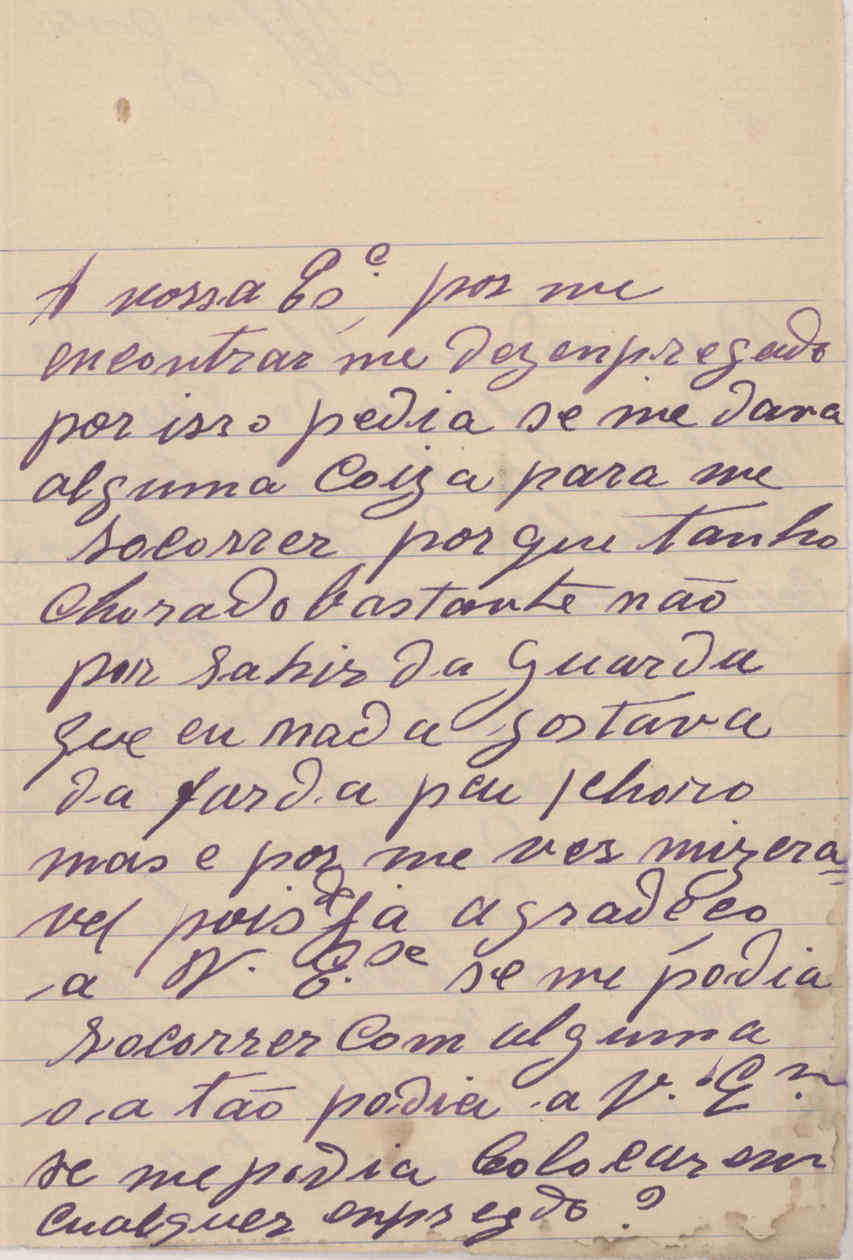 A vossa Es.ᶜ por me
encontrar me dezenpregado
por isso pedia se me dava
alguma Coiza para me
socorrer porque tanho
Chorado bastante não
por sahir da Guarda
que eu nada gostava
da farda peu choro
mas e por me ver mizera=
vel pois de já agradeco
a V. E.ᶜᵉ se me podia
socorrer Com alguma
o, a tão podia a V. E.
se me podia Colocar em
cualquer enpregdo?